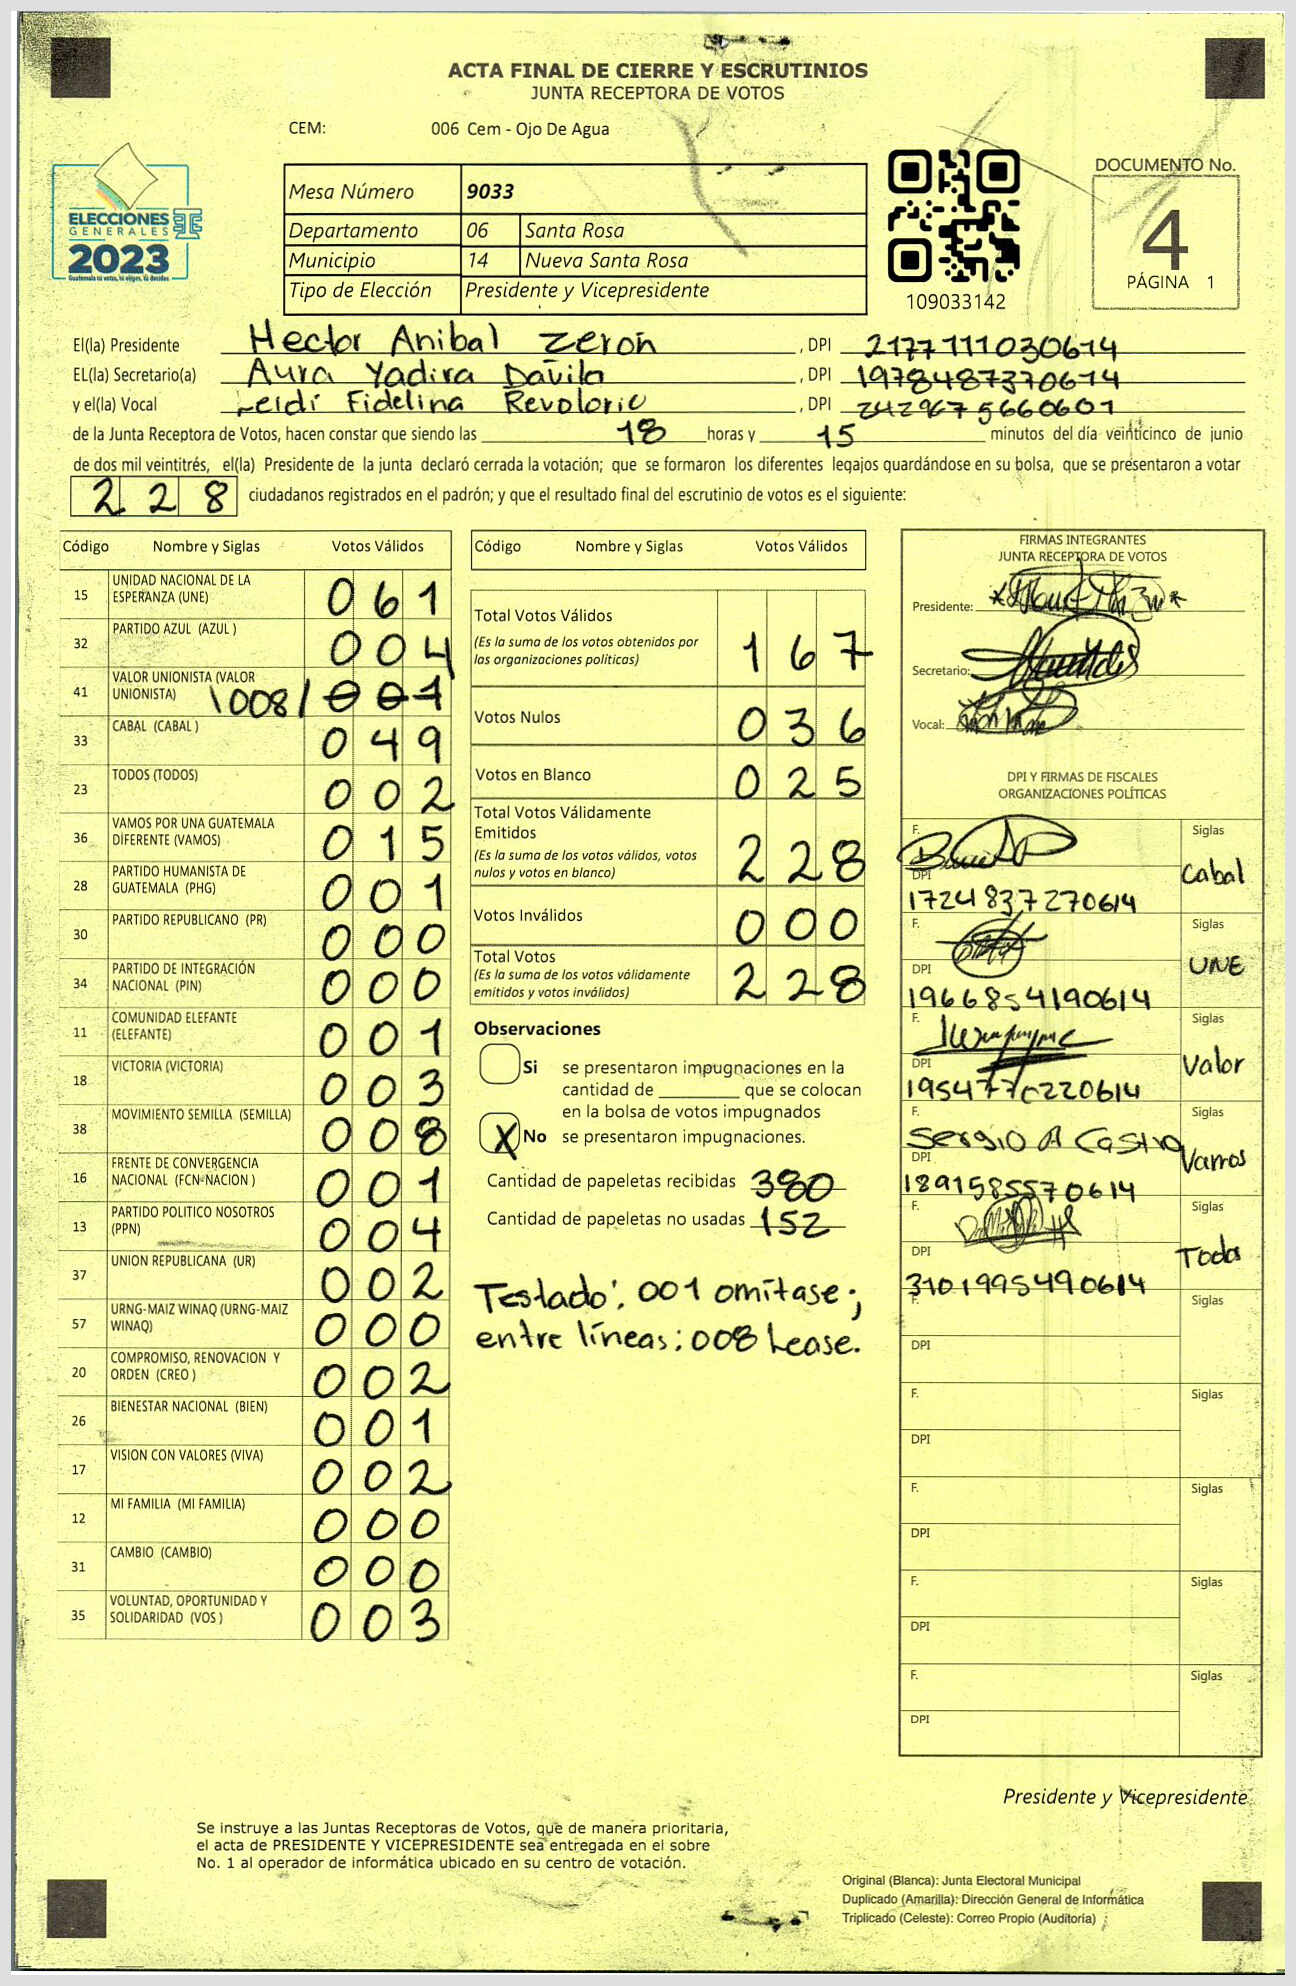 ACTA FINAL DE CIERRE Y ESCRUTINIOS
JUNTA RECEPTORA DE VOTOS
CEM: 006 Cem - Ojo De Agua
ELECCIONES
GENERALES
2023
Mesa Número 9033
Departamento 06 Santa Rosa
Municipio 14 Nueva Santa Rosa
Tipo de Elección Presidente y Vicepresidente
109033142
DOCUMENTO No.
4
PÁGINA 1
El(la) Presidente Hector Anibal Zerón , DPI 2177111030614
EL(la) Secretario(a) Aura Yadira Davila , DPI 1978487370614
y el(la) Vocal Leidi Fidelina Revolorio , DPI 2429675660601
de la Junta Receptora de Votos, hacen constar que siendo las 18 horas y 15 minutos del día veinticinco de junio
de dos mil veintitrés, el(la) Presidente de la junta declaró cerrada la votación; que se formaron los diferentes legajos guardándose en su bolsa, que se presentaron a votar
228 ciudadanos registrados en el padrón; y que el resultado final del escrutinio de votos es el siguiente:
Código Nombre y Siglas Votos Válidos
15 UNIDAD NACIONAL DE LA ESPERANZA (UNE) 061
32 PARTIDO AZUL (AZUL ) 004
41 VALOR UNIONISTA (VALOR UNIONISTA) \008/ 001
33 CABAL (CABAL ) 049
23 TODOS (TODOS) 002
36 VAMOS POR UNA GUATEMALA DIFERENTE (VAMOS) 015
28 PARTIDO HUMANISTA DE GUATEMALA (PHG) 001
30 PARTIDO REPUBLICANO (PR) 000
34 PARTIDO DE INTEGRACIÓN NACIONAL (PIN) 000
11 COMUNIDAD ELEFANTE (ELEFANTE) 001
18 VICTORIA (VICTORIA) 003
38 MOVIMIENTO SEMILLA (SEMILLA) 008
16 FRENTE DE CONVERGENCIA NACIONAL (FCN-NACION ) 001
13 PARTIDO POLITICO NOSOTROS (PPN) 004
37 UNION REPUBLICANA (UR) 002
57 URNG-MAIZ WINAQ (URNG-MAIZ WINAQ) 000
20 COMPROMISO, RENOVACION Y ORDEN (CREO ) 002
26 BIENESTAR NACIONAL (BIEN) 001
17 VISION CON VALORES (VIVA) 002
12 MI FAMILIA (MI FAMILIA) 000
31 CAMBIO (CAMBIO) 000
35 VOLUNTAD, OPORTUNIDAD Y SOLIDARIDAD (VOS ) 003
Código Nombre y Siglas Votos Válidos
Total Votos Válidos 167
(Es la suma de los votos obtenidos por
las organizaciones políticas)
Votos Nulos 036
Votos en Blanco 025
Total Votos Válidamente
Emitidos 228
(Es la suma de los votos válidos, votos
nulos y votos en blanco)
Votos Inválidos 000
Total Votos 228
(Es la suma de los votos válidamente
emitidos y votos inválidos)
Observaciones
Si se presentaron impugnaciones en la
cantidad de ________ que se colocan
en la bolsa de votos impugnados
X No se presentaron impugnaciones.
Cantidad de papeletas recibidas 380
Cantidad de papeletas no usadas 152
Testado: 001 omítase;
entre líneas: 008 Lease.
FIRMAS INTEGRANTES
JUNTA RECEPTORA DE VOTOS
Presidente:
Secretario:
Vocal:
DPI Y FIRMAS DE FISCALES
ORGANIZACIONES POLÍTICAS
F. Siglas
Cabal
DPI
1724837270614
F. Siglas
UNE
DPI
1966854190614
F. Siglas
Valor
DPI
F. Siglas
Sergio A Castro
Vamos
DPI
1891585570614
F. Siglas
Todos
DPI
3101995490614
F. Siglas
DPI
F. Siglas
DPI
F. Siglas
DPI
F. Siglas
DPI
F. Siglas
DPI
Presidente y Vicepresidente
Se instruye a las Juntas Receptoras de Votos, que de manera prioritaria,
el acta de PRESIDENTE Y VICEPRESIDENTE sea entregada en el sobre
No. 1 al operador de informática ubicado en su centro de votación.
Original (Blanca): Junta Electoral Municipal
Duplicado (Amarilla): Dirección General de Informática
Triplicado (Celeste): Correo Propio (Auditoría)